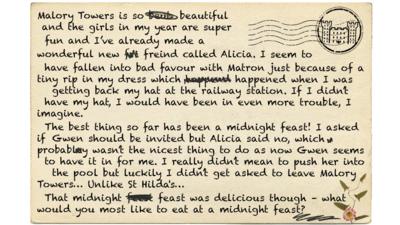 Malory Towers is so beautiful
and the girls in my year are super
fun and I've already made a
wonderful new freind called Alicia. I seem to
have fallen into bad favour with Matron just because of a
tiny rip in my dress which happened when I was
getting back my hat at the railway station. If I didn't
have my hat, I would have been in even more trouble, I
imagine.
The best thing so far has been a midnight feast! I asked
if Gwen should be invited but Alicia said no, which
probably wasn't the nicest thing to do as now Gwen seems
to have it in for me. I really didn't mean to push her into
the pool but luckily I didn't get asked to leave Malory
Towers... Unlike St Hilda's...
That midnight feast was delicious though - what
would you most like to eat at a midnight feast?